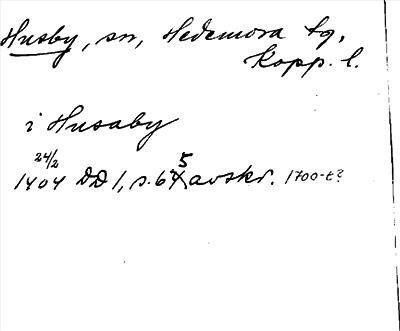 Husby, sn, Hedemora tg,
Kopp. l.
i Husaby
24/2
1404 DD 1, s. 65 avskr. 1700-t?